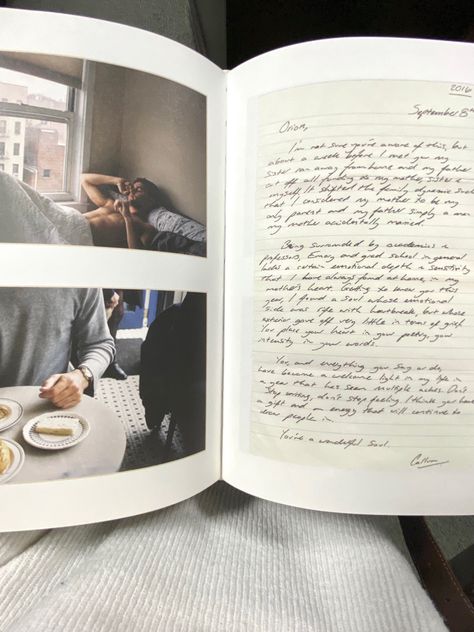 2016
September 8th
Orion,
I'm not sure you're aware of this, but
about a week before I met you my
sister ran away from home and my father
cut off all funding to my mother, sister &
myself. It shifted the family dynamic such
that I considered my mother to be my
only parent and my father simply a man
my mother accidentally married.
Being surrounded by academics &
professors, Emory and grad school in general
lacks a certain emotional depth & sensitivity
that I have always found at home in my
mother's heart. Getting to know you this
year, I found a soul whose emotional
side was rife with heartbreak, but whose
exterior gave off very little in terms of grief.
You place your heart in your poetry, your
intensity in your words.
You, and everything you say or do,
have become a welcome light in my life in
a year that has seen multiple aches. Don't
stop writing, don't stop feeling. I think you have
a gift and an energy that will continue to
draw people in.
You're a wonderful soul.
Callum